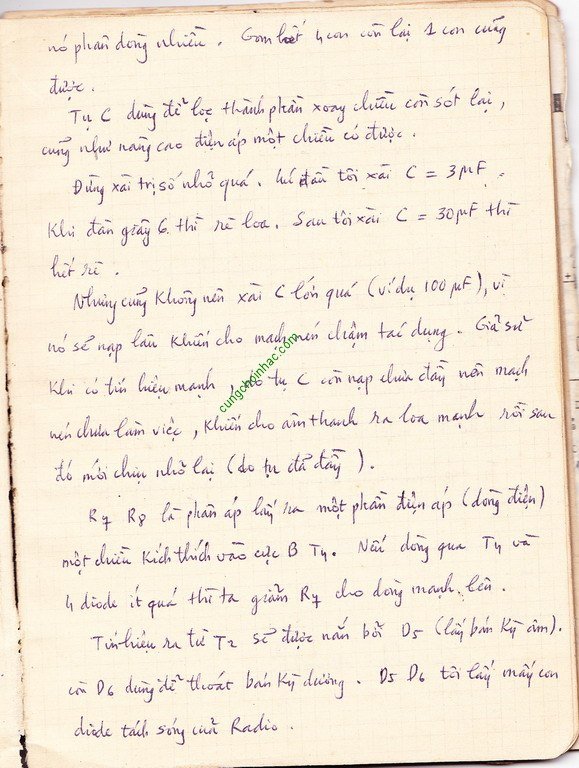 nó phân dòng nhiều. Gom hết 4 con còn lại 1 con cũng
được.
Tụ C dùng để lọc thành phần xoay chiều còn sót lại,
cũng như nâng cao điện áp một chiều có được.
Đừng xài trị số nhỏ quá. Lúc đầu tôi xài C = 3µF.
Khi đàn giây 6 thì rè loa. Sau tôi xài C = 30µF thì
hết rè.
Nhưng cũng không nên xài C lớn quá (ví dụ 100 µF), vì
nó sẽ nạp lâu khiến cho mạch nén chậm tác dụng. Giả sử
khi có tín hiệu mạnh, do tụ C còn nạp chưa đầy nên mạch
nén chưa làm việc, khiến cho âm thanh ra loa mạnh rồi sau
đó mới chịu nhỏ lại (do tụ đã đầy).
R7 R8 là phân áp lấy ra một phần điện áp (dòng điện)
một chiều kích thích vào cực B T4. Nếu dòng qua T4 và
4 diode ít quá thì ta giảm R7 cho dòng mạnh lên.
Tín hiệu ra từ T2 sẽ được nắn bởi D5 (lấy bán kỳ âm).
còn D6 dùng để thoát bán kỳ dương. D5 D6 tôi lấy mấy con
diode tách sóng của Radio.
cungchoinhac.com